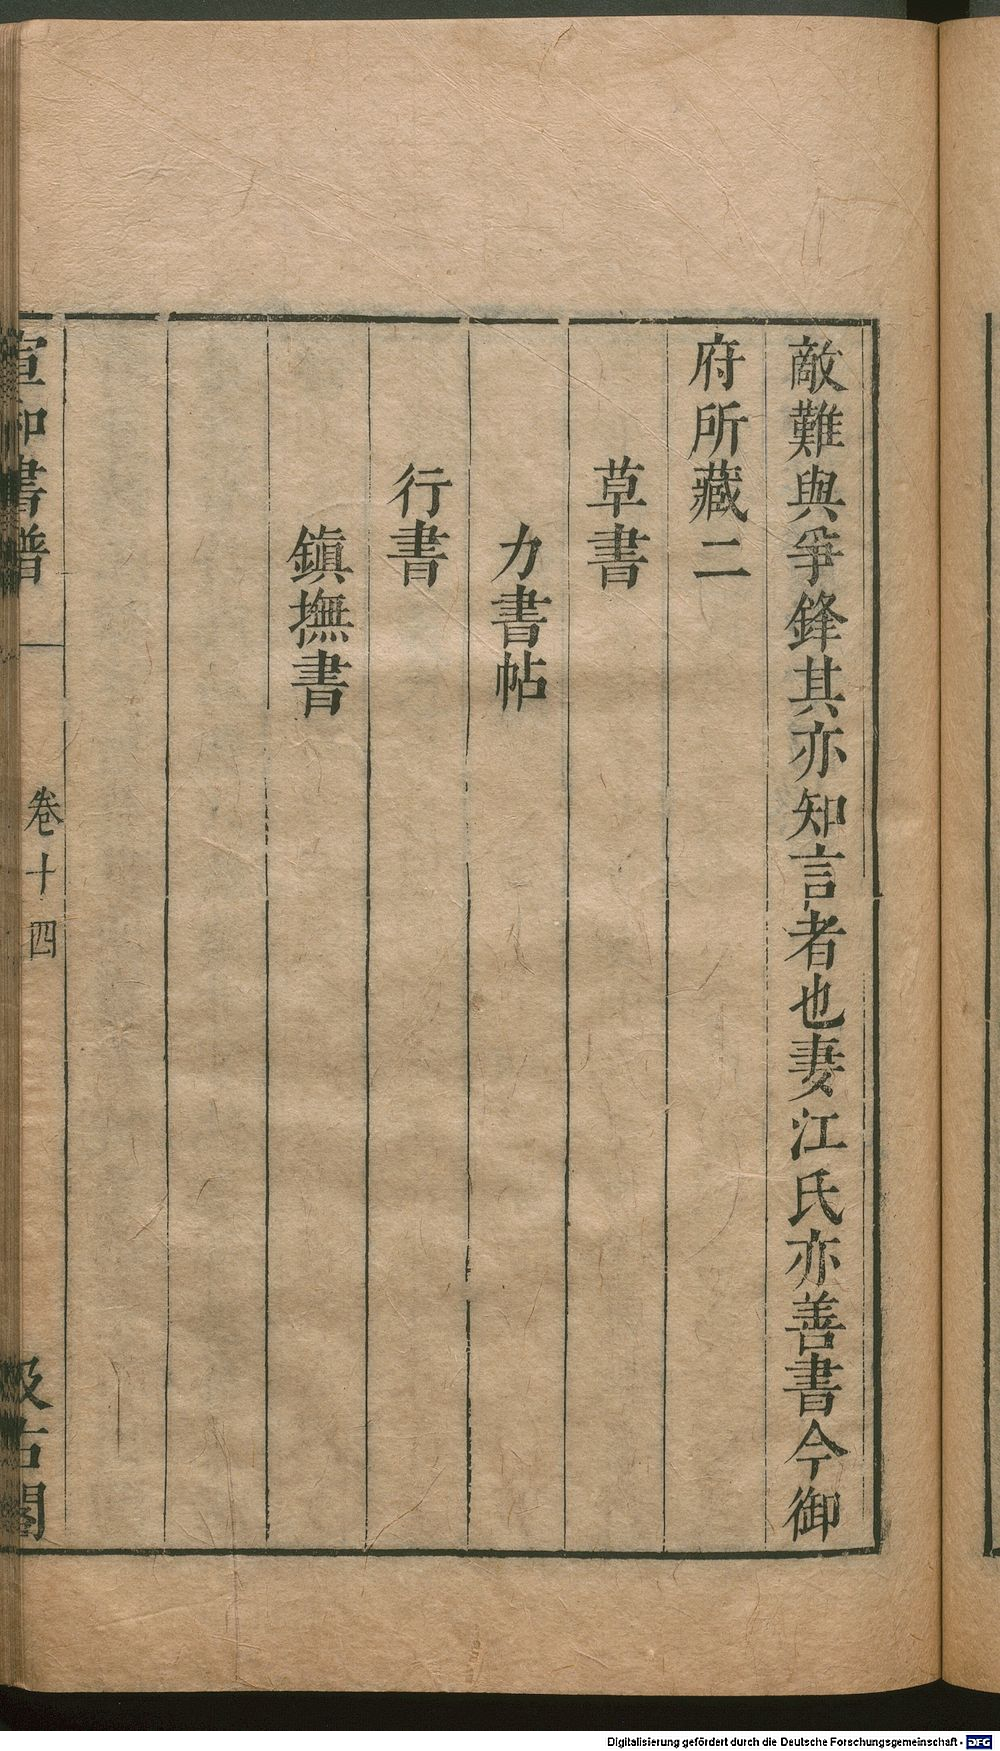 敵難與爭鋒其亦知言者也妻江氏亦善書今御
府所藏二
草書
力書帖
行書
鎮撫書
宣和書譜
卷十四
汲古閣
Digitalisierung gefördert durch die Deutsche Forschungsgemeinschaft - DFG